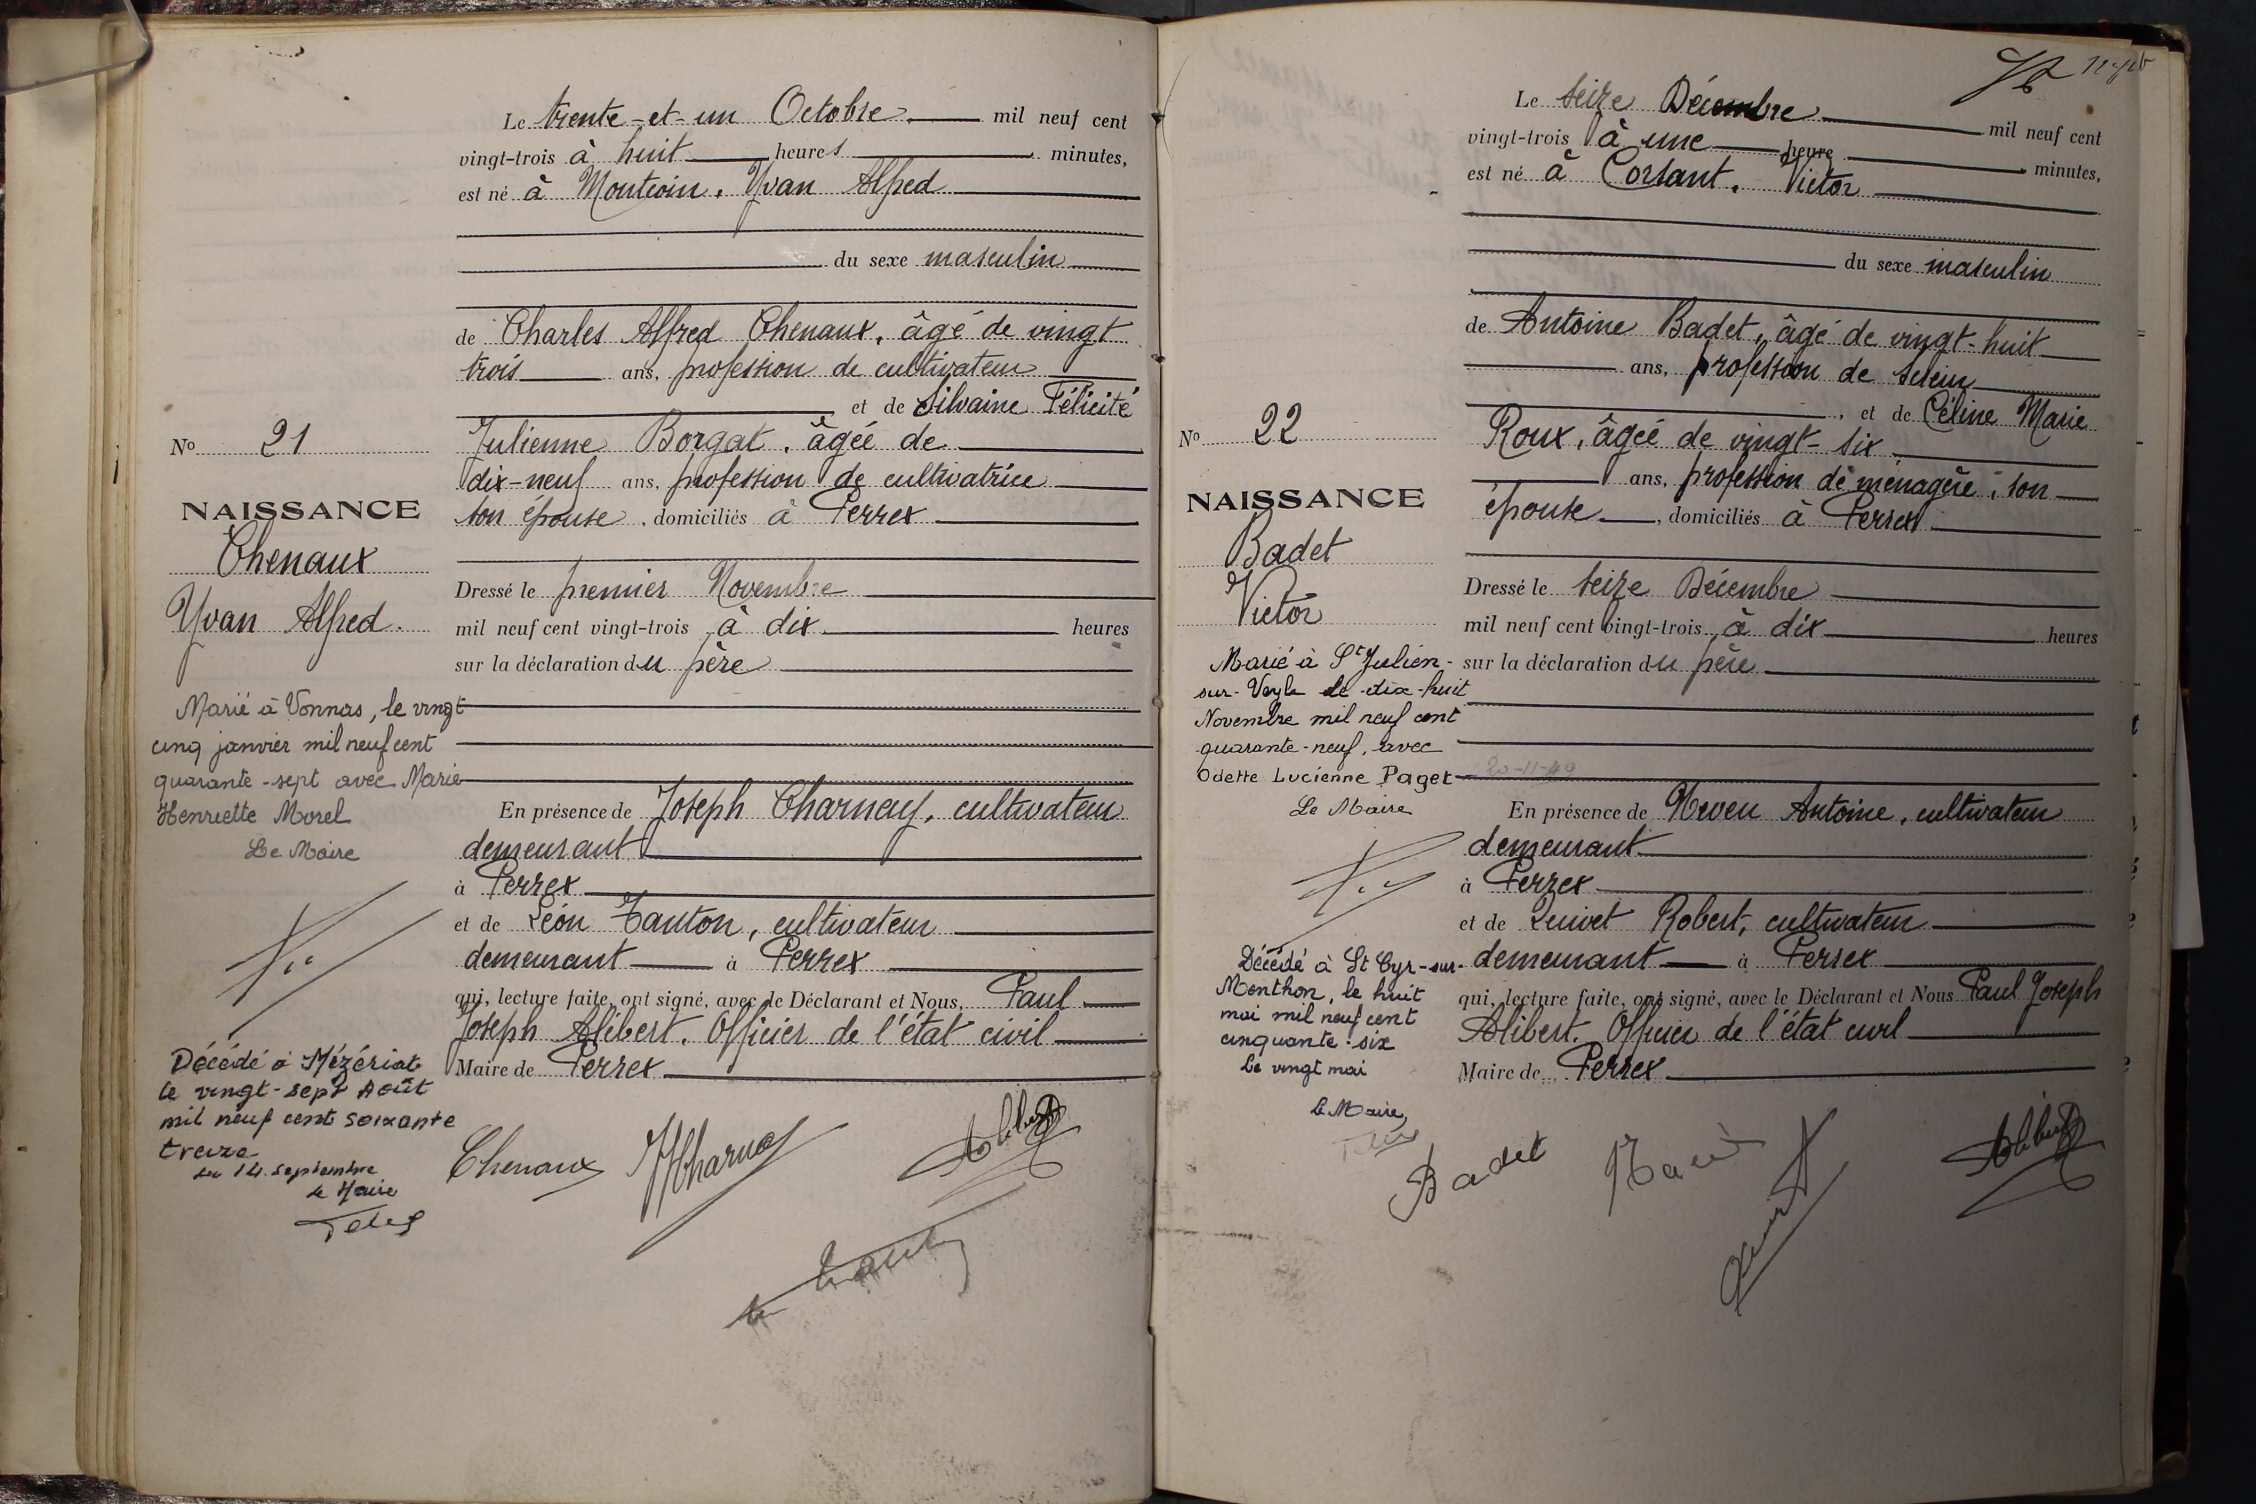 Le trente-et-un Octobre mil neuf cent
vingt-trois à huit heures minutes,
est né à Montcoin, Yvan Alfred
du sexe masculin
de Charles Alfred Chenaux, âgé de vingt
trois ans, profession de cultivateur
et de Silvaine Félicité
Julienne Borgat, âgée de
dix-neuf ans, profession de cultivatrice
son épouse, domiciliés à Perrex
Dressé le premier Novembre
mil neuf cent vingt-trois à dix heures
sur la déclaration du père
En présence de Joseph Charnay, cultivateur
demeurant
à Perrex
et de Léon Tauton, cultivateur
demeurant à Perrex
qui, lecture faite, ont signé, avec le Déclarant et Nous, Paul
Joseph Alibert, Officier de l'état civil
Maire de Perrex
Chenaux JHCharnay Alibert
No 21
NAISSANCE
Chenaux
Yvan Alfred.
Marié à Vonnas, le vingt
cinq janvier mil neuf cent
quarante-sept avec Marie
Henriette Morel
Le Maire
Décédé à Mézériat
le vingt-sept Août
mil neuf cent soixante
treize
le 14 Septembre
le Maire
Le seize Décembre mil neuf cent
vingt-trois à une heure minutes,
est né à Corsant, Victor
du sexe masculin
de Antoine Badet, âgé de vingt-huit
ans, profession de
et de Céline Marie
Roux, âgée de vingt-six
ans, profession de ménagère, son
épouse, domiciliés à Perrex
Dressé le seize Décembre
mil neuf cent vingt-trois à dix heures
sur la déclaration du père
20-11-49
En présence de Antoine, cultivateur
demeurant
à Perrex
et de Robert, cultivateur
demeurant à Perrex
qui, lecture faite, ont signé, avec le Déclarant et Nous Paul Joseph
Alibert, Officier de l'état civil
Maire de Perrex
Badet Alibert
No 22
NAISSANCE
Badet
Victor
Marié à St Julien-
sur-Veyle le dix-huit
Novembre mil neuf cent
quarante-neuf, avec
Odette Lucienne Paget
Le Maire
Décédé à St Cyr-sur-
Menthon, le huit
mai mil neuf cent
cinquante-six
Le vingt mai
Le Maire,